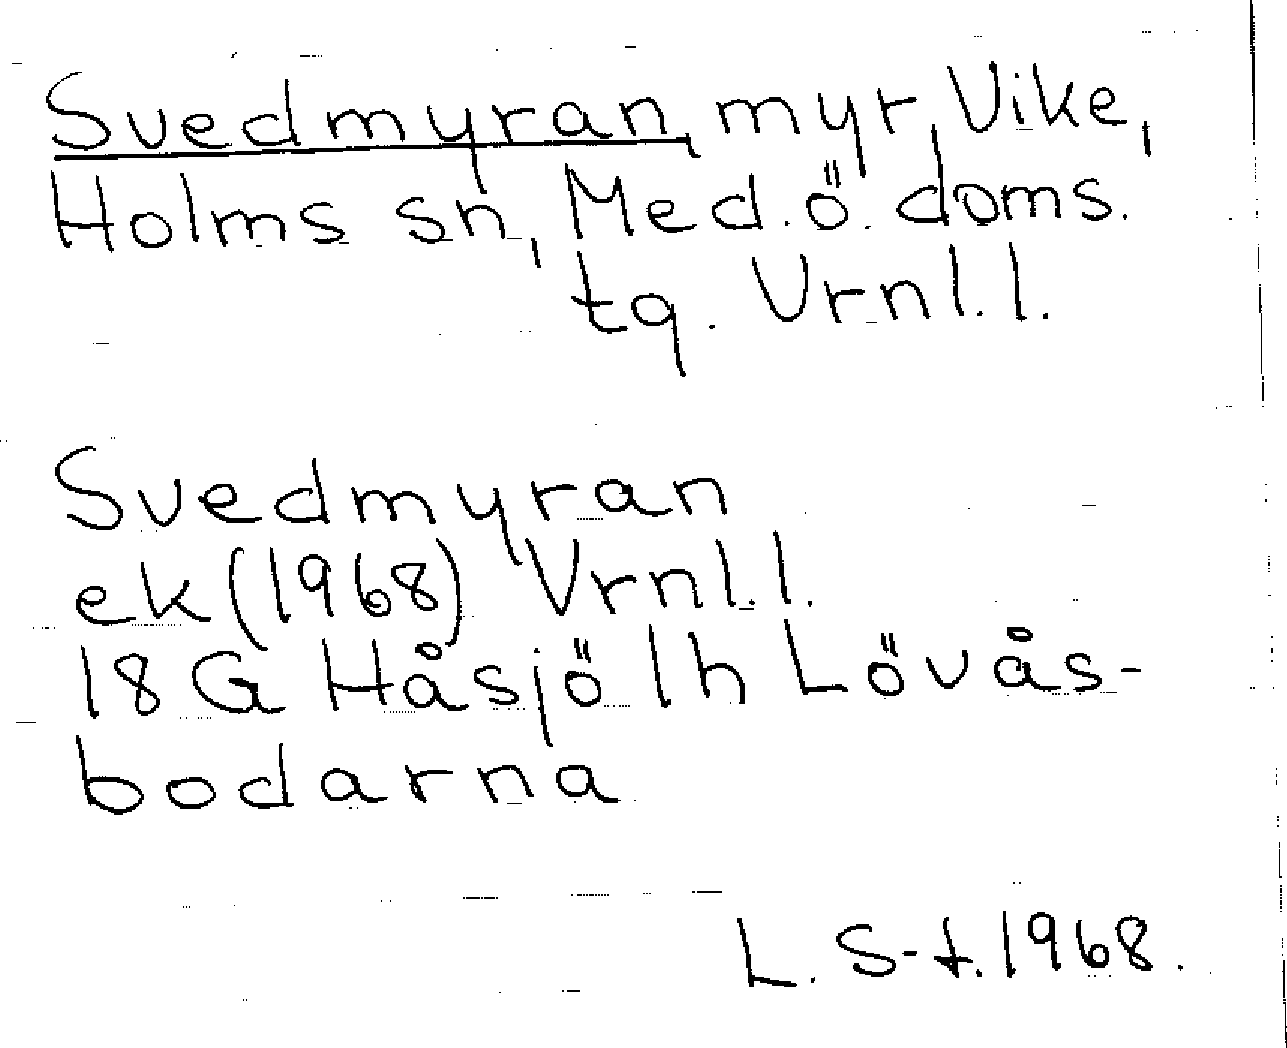 Svedmyran, myr, Vike,
Holms sn, Med.ö. doms.
tq. Vrnl.l.
Svedmyran
ek (1968) Vrnl.l.
18 G Håsjö 1h Lövås-
bodarna
L. S-t. 1968.